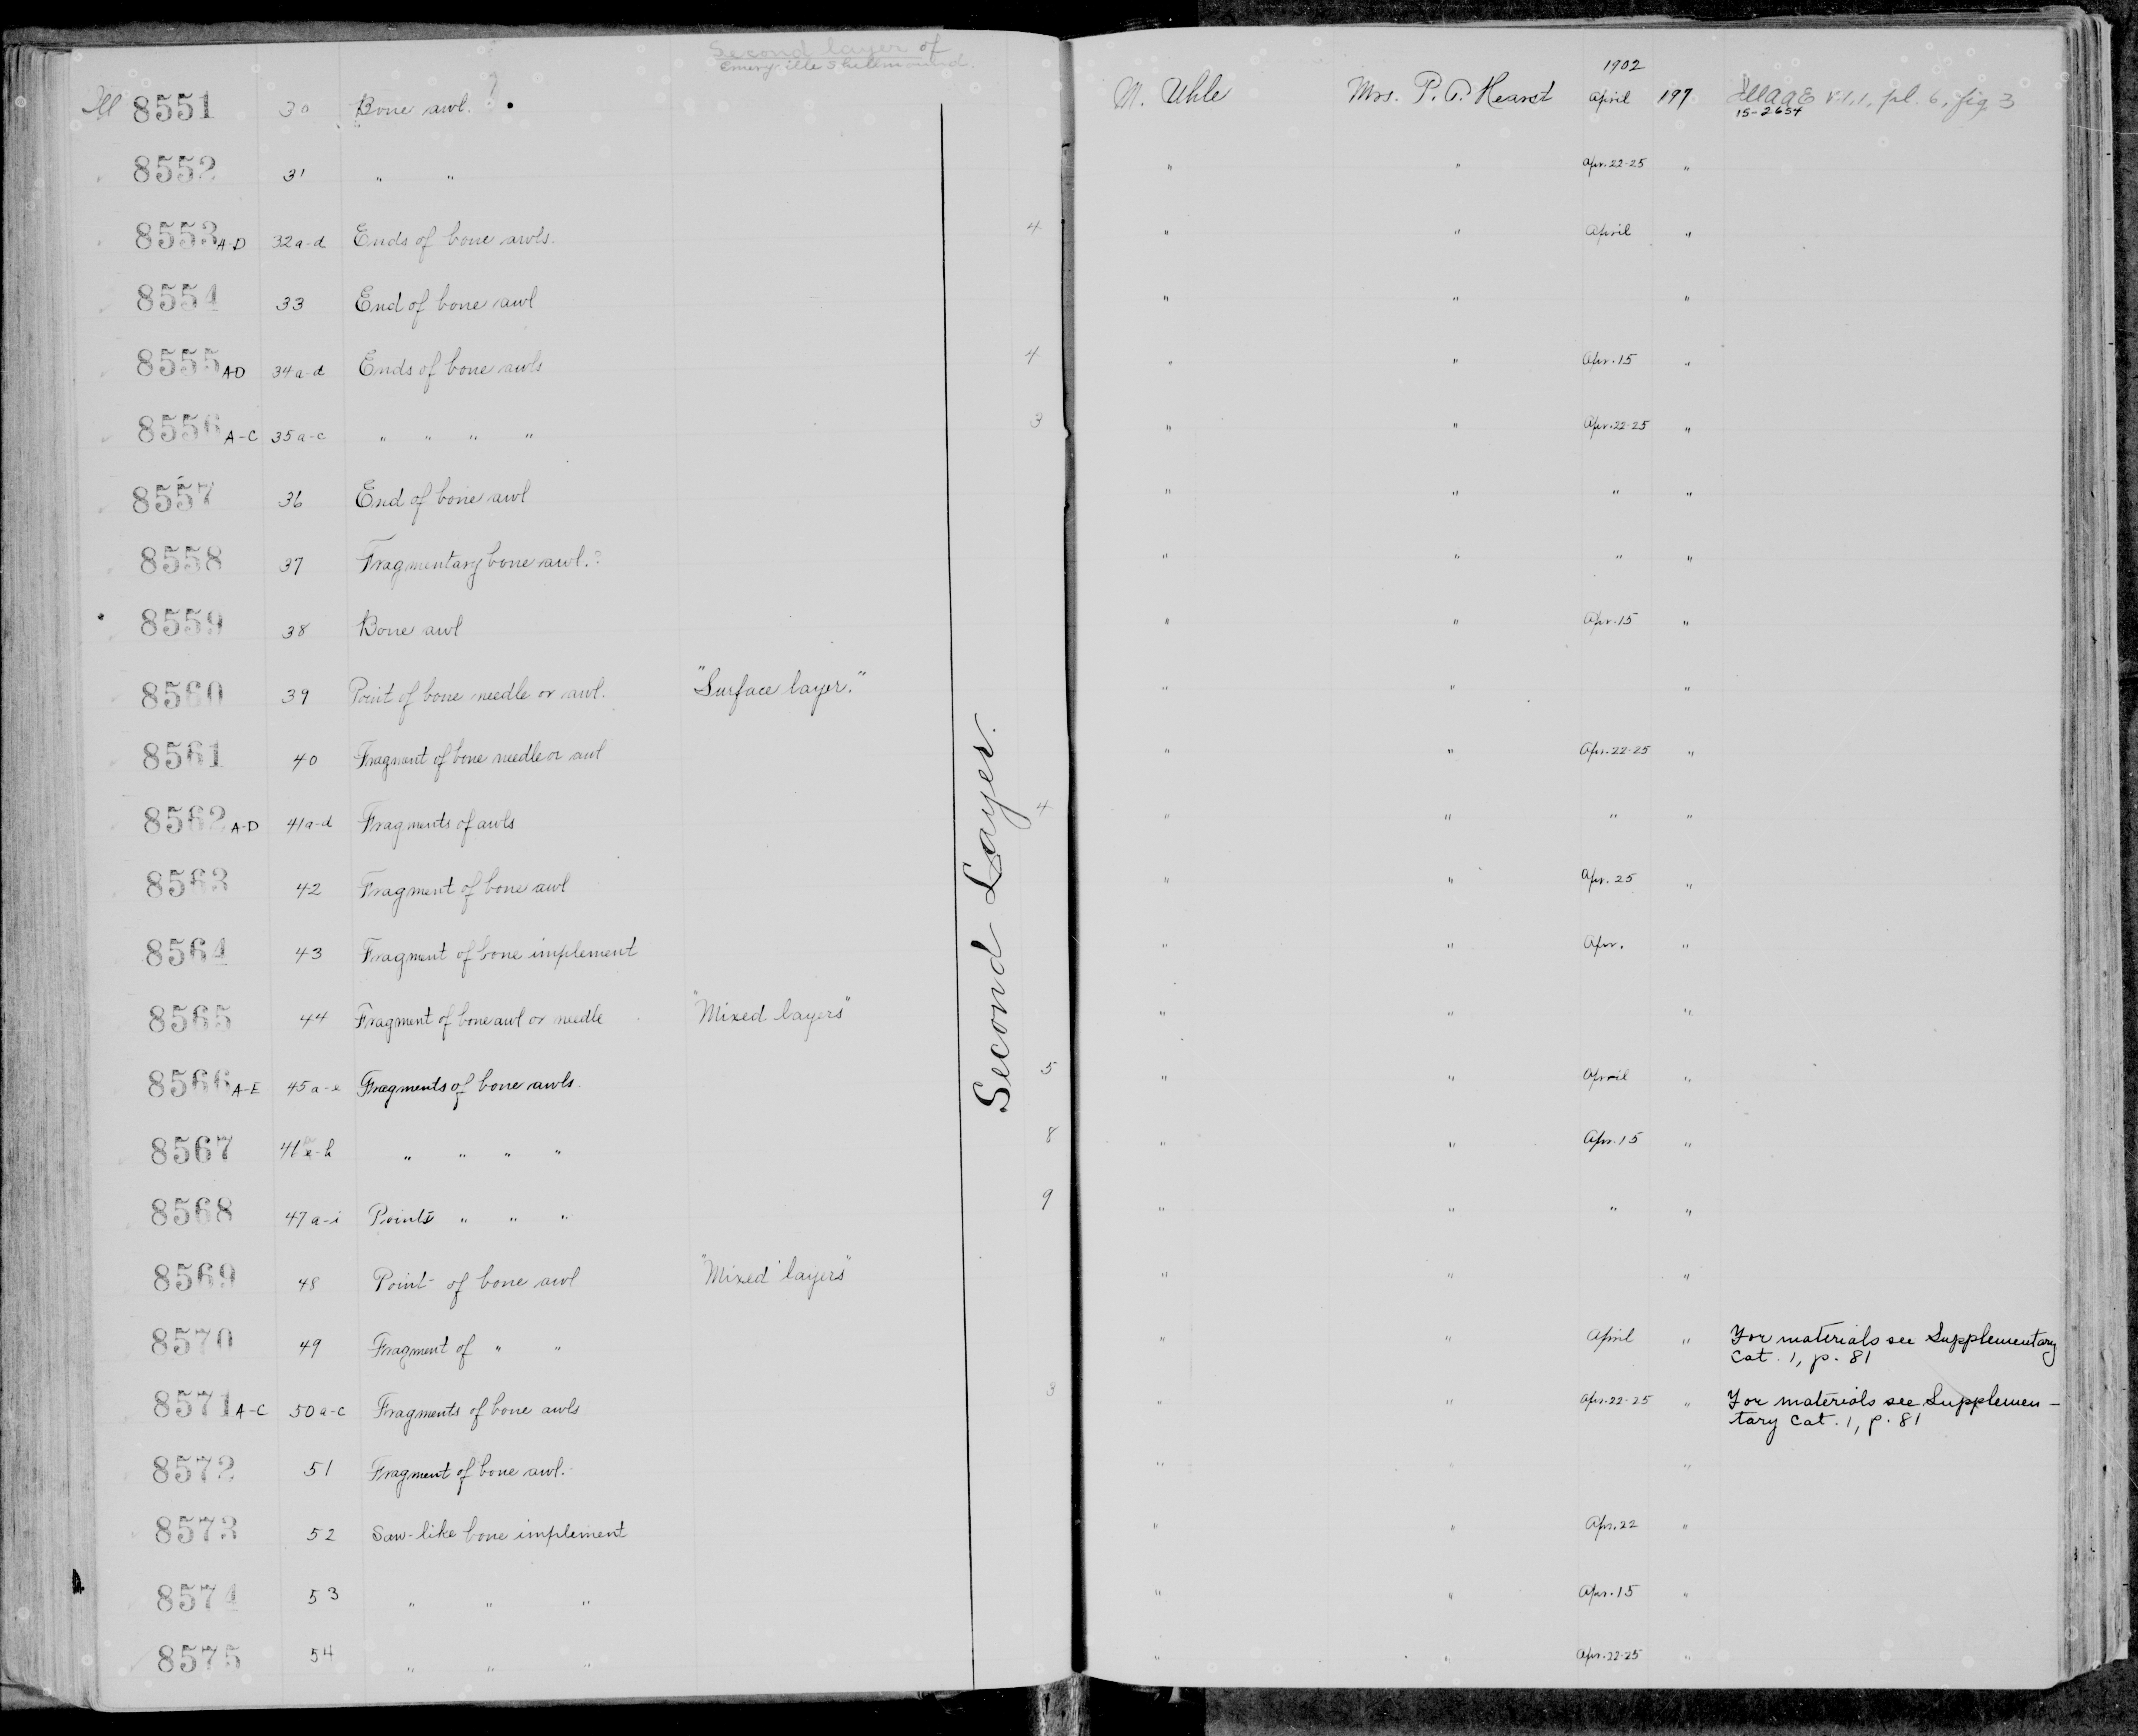 Second layer of
Emeryville Shellmound.
Ill 8551 30 Bone awl. ? M. Uhle Mrs. P. A. Hearst 1902 April 197 UCAAE v.1,1, pl. 6, fig 3
15-2654
8552 31 " " " " Apr. 22-25 "
8553 A-D 32a-d Ends of bone awls. 4 " " April "
8554 33 End of bone awl " " "
8555 A-D 34a-d Ends of bone awls 4 " " Apr. 15 "
8556 A-C 35a-c " " " " 3 " " Apr. 22-25 "
8557 36 End of bone awl " " " "
8558 37 Fragmentary bone awl. ? " " " "
8559 38 Bone awl " " Apr. 15 "
8560 39 Point of bone needle or awl. "Surface layer." " " "
8561 40 Fragment of bone needle or awl " " Apr. 22-25 "
8562 A-D 41a-d Fragments of awls 4 " " " "
8563 42 Fragment of bone awl " " Apr. 25 "
8564 43 Fragment of bone implement " " Apr. "
8565 44 Fragment of bone awl or needle "Mixed layers" " " "
8566 A-E 45a-e Fragments of bone awls. 5 " " April "
8567 " " " " 8 " " Apr. 15 "
8568 47a-i Points " " " 9 " " " "
8569 48 Point of bone awl "Mixed layers" " " "
8570 49 Fragment of " " " " April " For materials see Supplementary
Cat. 1, p. 81
8571 A-C 50a-c Fragments of bone awls 3 " " Apr. 22-25 " For materials see Supplemen-
tary Cat. 1, p. 81
8572 51 Fragment of bone awl. " " "
8573 52 Saw-like bone implement " " Apr. 22 "
8574 53 " " " " " Apr. 15 "
8575 54 " " " " " Apr. 22-25 "
Second Layer.